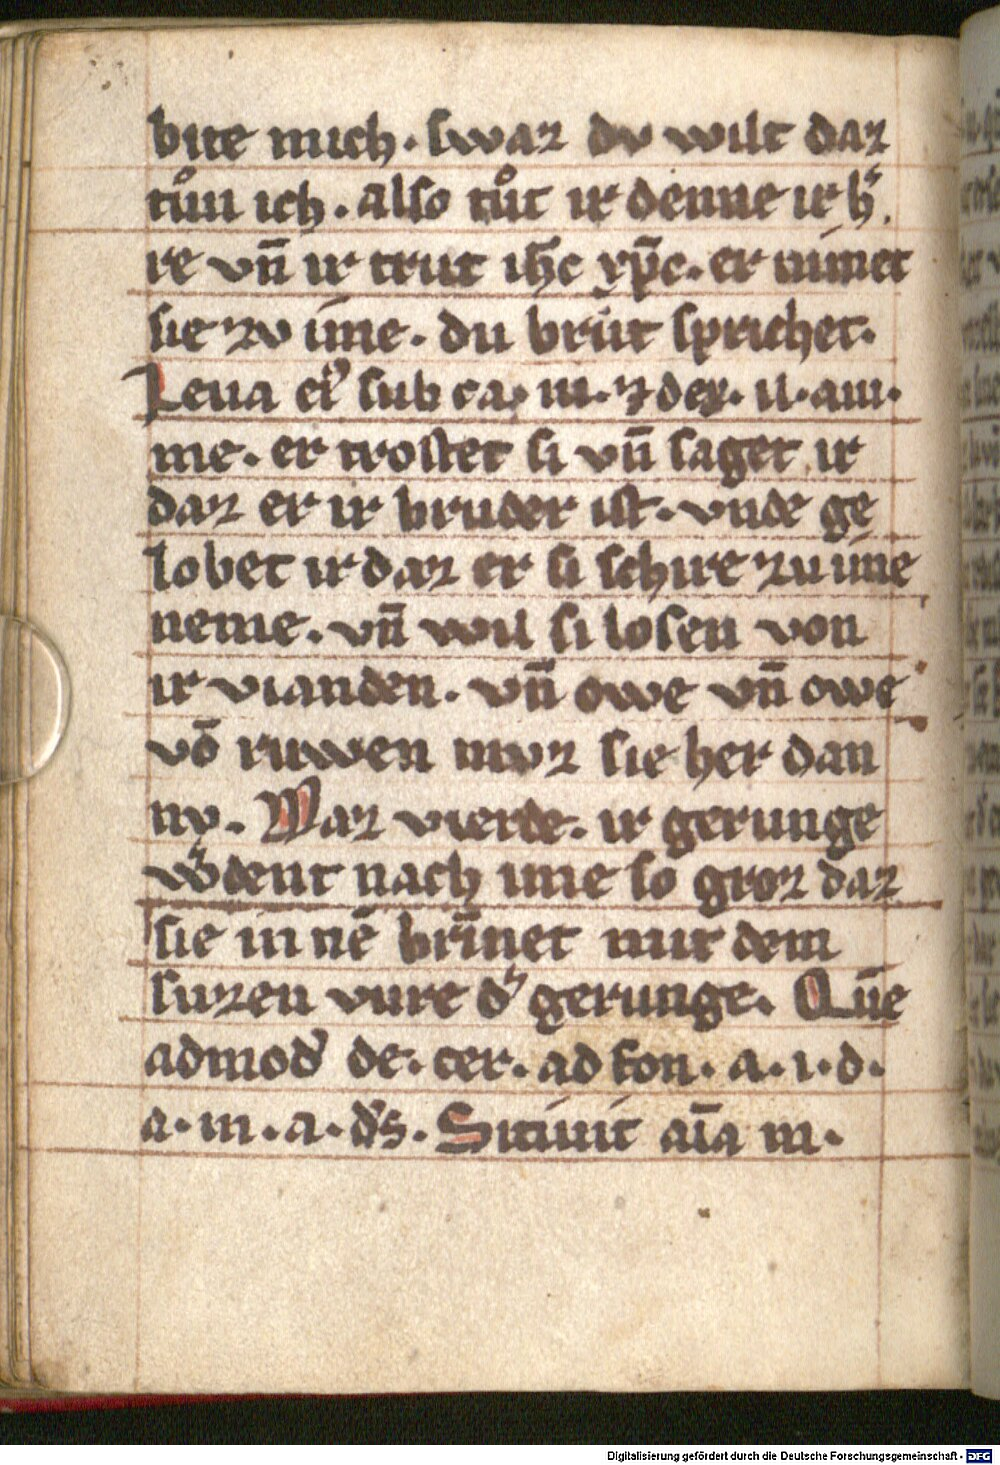 bite mich. swaz dv wilt daz
tůn ich. also tůt ir denne ir h̾
re vn̄ ir trut ih̄c xp̄c. er nimet
sie zv ime. du brut sprichet.
Leua ei᷒ sub ca. m. ⁊ dex. il. am.
me. er trostet si vn̄ saget ir
daz er ir bruder ist. vnde ge
lobet ir daz er si schire zu ime
neme. vn̄ wil si losen von
ir vianden. vn̄ owe vn̄ owe
vō ruwen mvz sie her dan
ny. Daz vierde. ir gerunge
w̾dent nach ime so groz daz
sie in nē brīnet mit dem
suzen vure d̾ gerunge. Quē
admod̾ de. cer. ad fon. a. i. d.
a. m. a. d̾s. Sitiuit aīa m.
Digitalisierung gefördert durch die Deutsche Forschungsgemeinschaft - DFG